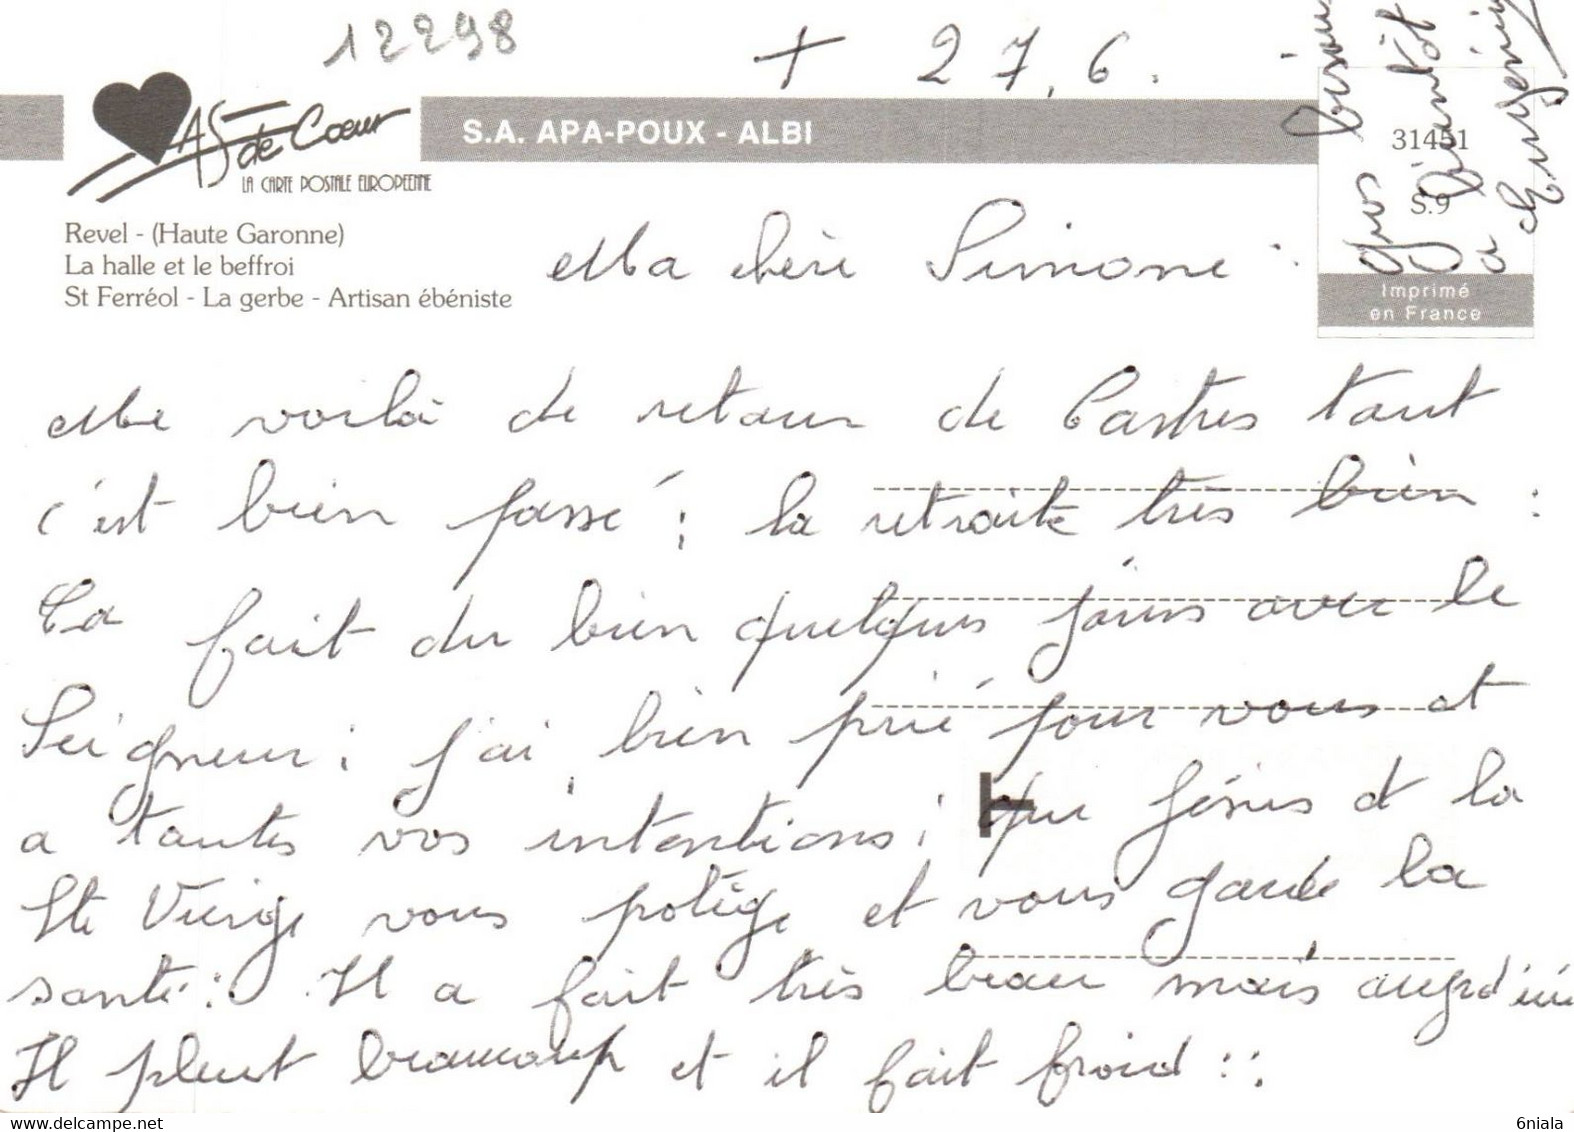 12298
+ 27.6.
As de Cœur
LA CARTE POSTALE EUROPEENNE
S.A. APA-POUX - ALBI
Revel - (Haute Garonne)
La halle et le beffroi
St Ferréol - La gerbe - Artisan ébéniste
31451
S.9
Imprimé
en France
Ma chère Simone :
Me voilà de retour de Castres tout
c'est bien passé ; la retraite très bien :
Ca fait du bien quelques jours avec le
Seigneur ; j'ai bien prié pour vous et
a toutes vos intentions ; que Jésus et la
Ste Vierge vous protège et vous garde la
santé : Il a fait très beau mais aujourd'hui
Il pleut beaucoup et il fait froid ::
gros bisous
a bientôt
www.delcampe.net
6niala